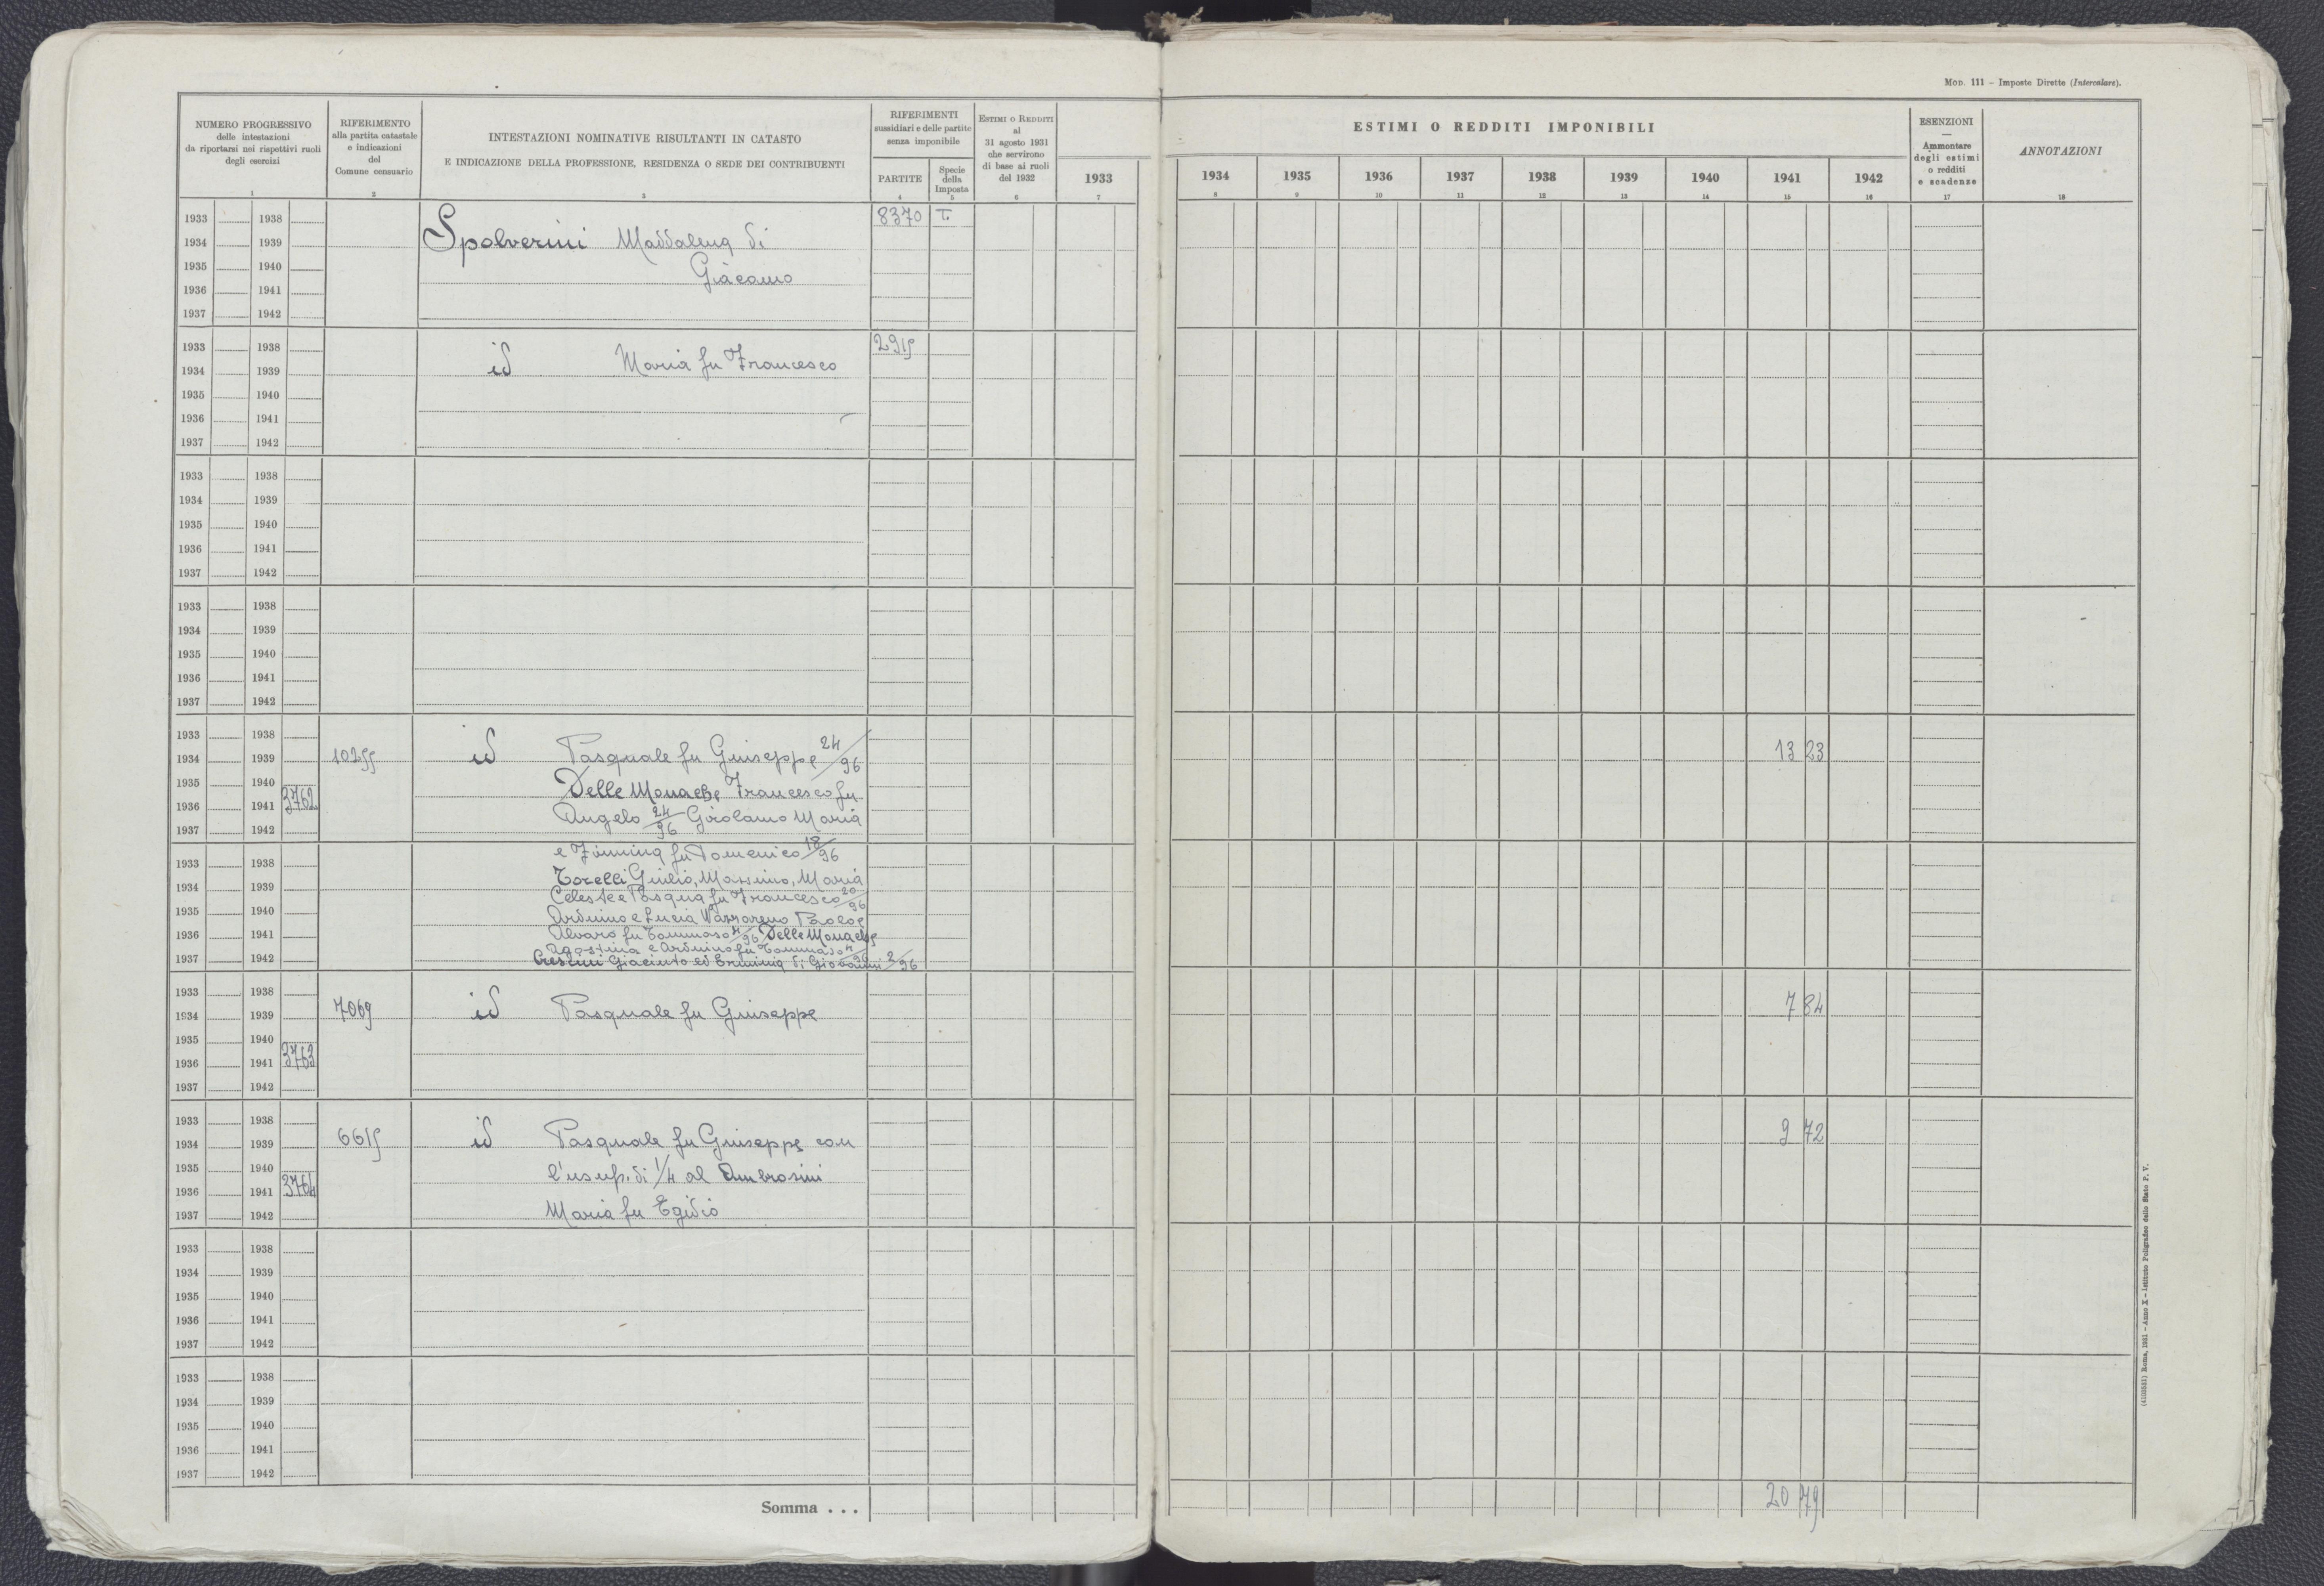 MOD. 111 – Imposte Dirette (Intercalare).
NUMERO PROGRESSIVO
delle intestazioni
da riportarsi nei rispettivi ruoli
degli esercizi
1
RIFERIMENTO
alla partita catastale
e indicazioni
del
Comune censuario
2
INTESTAZIONI NOMINATIVE RISULTANTI IN CATASTO
E INDICAZIONE DELLA PROFESSIONE, RESIDENZA O SEDE DEI CONTRIBUENTI
3
RIFERIMENTI
sussidiari e delle partite
senza imponibile
PARTITE
4
Specie
della
Imposta
5
ESTIMI O REDDITI
al
31 agosto 1931
che servirono
di base ai ruoli
del 1932
6
1933
7
ESTIMI O REDDITI IMPONIBILI
1934 1935 1936 1937 1938 1939 1940 1941 1942
8 9 10 11 12 13 14 15 16
ESENZIONI
—
Ammontare
degli estimi
o redditi
e scadenze
17
ANNOTAZIONI
18
1933 1938 8370 T.
1934 1939 Spolverini Maddalena di
1935 1940 Giacomo
1936 1941
1937 1942
1933 1938 2915
1934 1939 id Maria fu Francesco
1935 1940
1936 1941
1937 1942
1933 1938
1934 1939
1935 1940
1936 1941
1937 1942
1933 1938
1934 1939
1935 1940
1936 1941
1937 1942
1933 1938
1934 1939 10255 id Pasquale fu Giuseppe 24/96 13 23
1935 1940 Delle Monache Francesco fu
1936 1941 3762 Angelo 24/96 Girolamo Maria
1937 1942
e Firmina fu Domenico 18/96
1933 1938 Torelli Giulio, Massimo, Maria
1934 1939 Celeste e Pasqua fu Francesco 20/96
1935 1940 Arduino e Lucia Nazzareno Paolo e
1936 1941 Alvaro fu Tommaso 4/96 Delle Monache
1937 1942 Agostina e Arduino fu Tommaso 4/96
Crestini Giacinto ed Erminia di Giovanni 2/96
1933 1938
1934 1939 7069 id Pasquale fu Giuseppe 7 84
1935 1940
1936 1941 3763
1937 1942
1933 1938
1934 1939 6615 id Pasquale fu Giuseppe con 9 72
1935 1940 l'usuf. di 1/4 al Ambrosini
1936 1941 3764
1937 1942 Maria fu Egidio
1933 1938
1934 1939
1935 1940
1936 1941
1937 1942
1933 1938
1934 1939
1935 1940
1936 1941
1937 1942
Somma . . . 20 79
(4103551) Roma, 1931 – Anno X – Istituto Poligrafico dello Stato P. V.